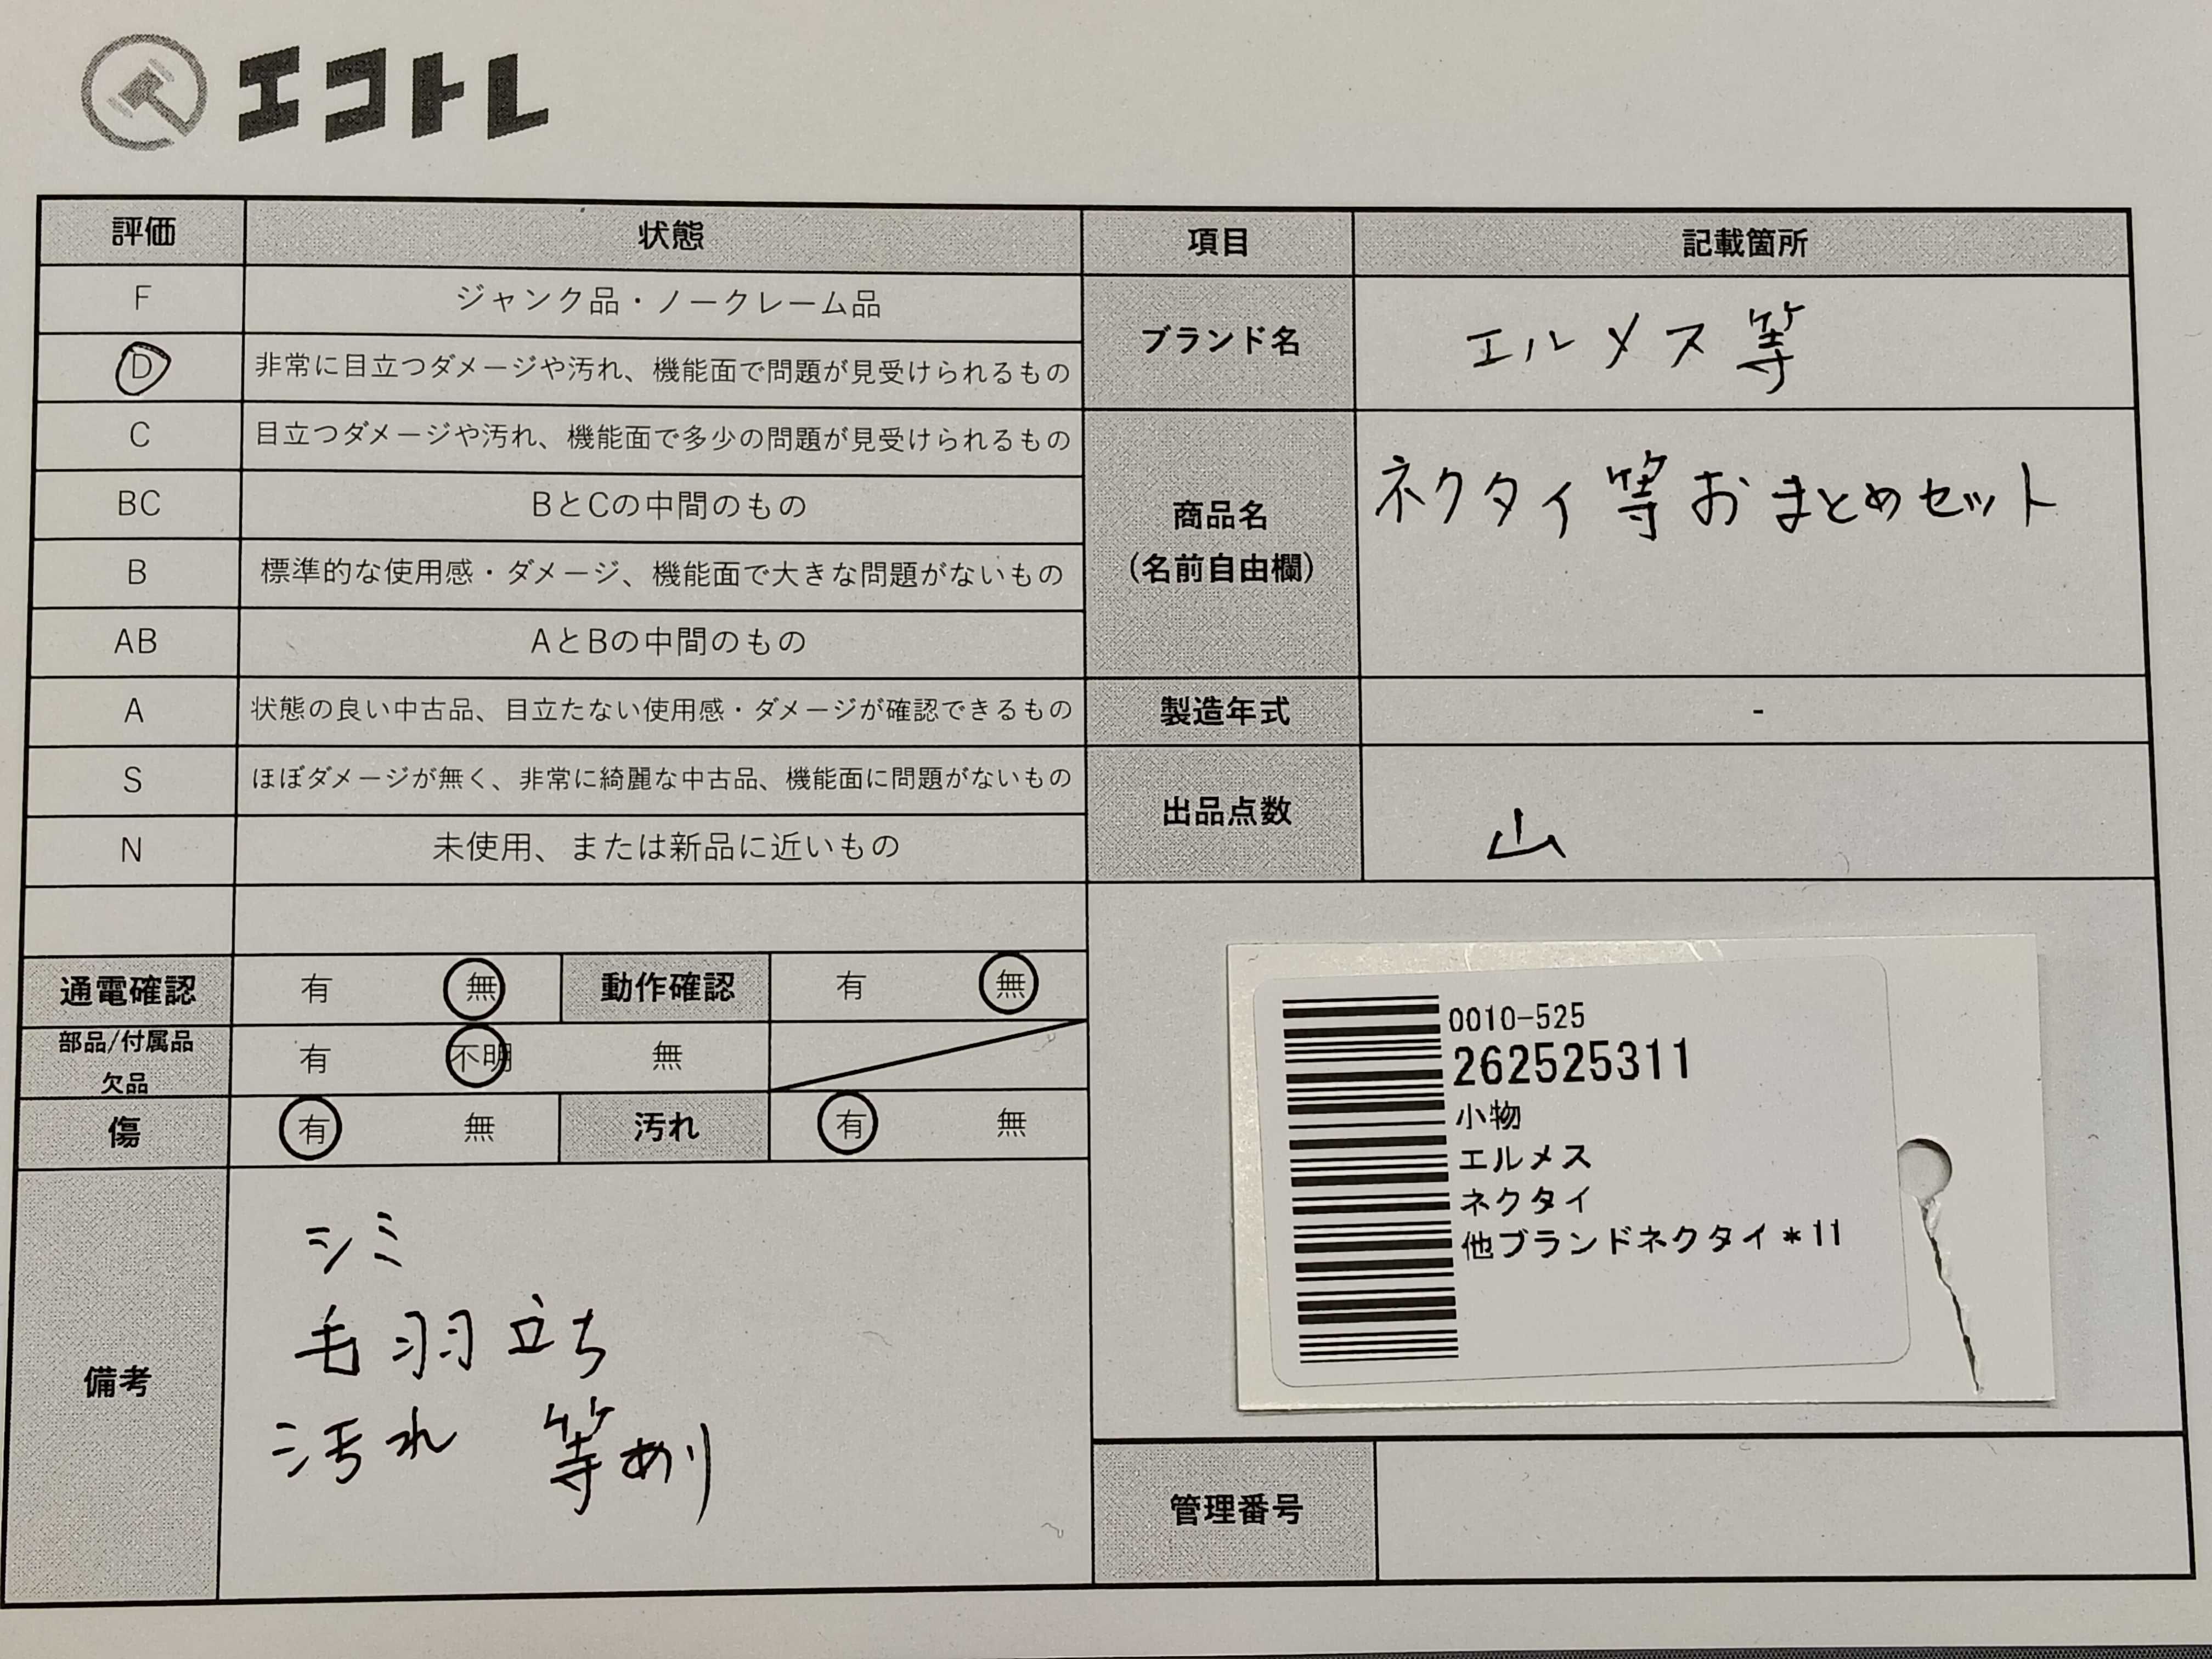 エコトレ
評価 状態 項目 記載箇所
F ジャンク品・ノークレーム品
D 非常に目立つダメージや汚れ、機能面で問題が見受けられるもの
C 目立つダメージや汚れ、機能面で多少の問題が見受けられるもの
BC BとCの中間のもの
B 標準的な使用感・ダメージ、機能面で大きな問題がないもの
AB AとBの中間のもの
A 状態の良い中古品、目立たない使用感・ダメージが確認できるもの
S ほぼダメージが無く、非常に綺麗な中古品、機能面に問題がないもの
N 未使用、または新品に近いもの
ブランド名 エルメス等
商品名 ネクタイ等おまとめセット
(名前自由欄)
製造年式 -
出品点数 山
通電確認 有 無 動作確認 有 無
部品/付属品
欠品 有 不明 無
傷 有 無 汚れ 有 無
備考
シミ
毛羽立ち
汚れ 等あり
0010-525
262525311
小物
エルメス
ネクタイ
他ブランドネクタイ*11
管理番号